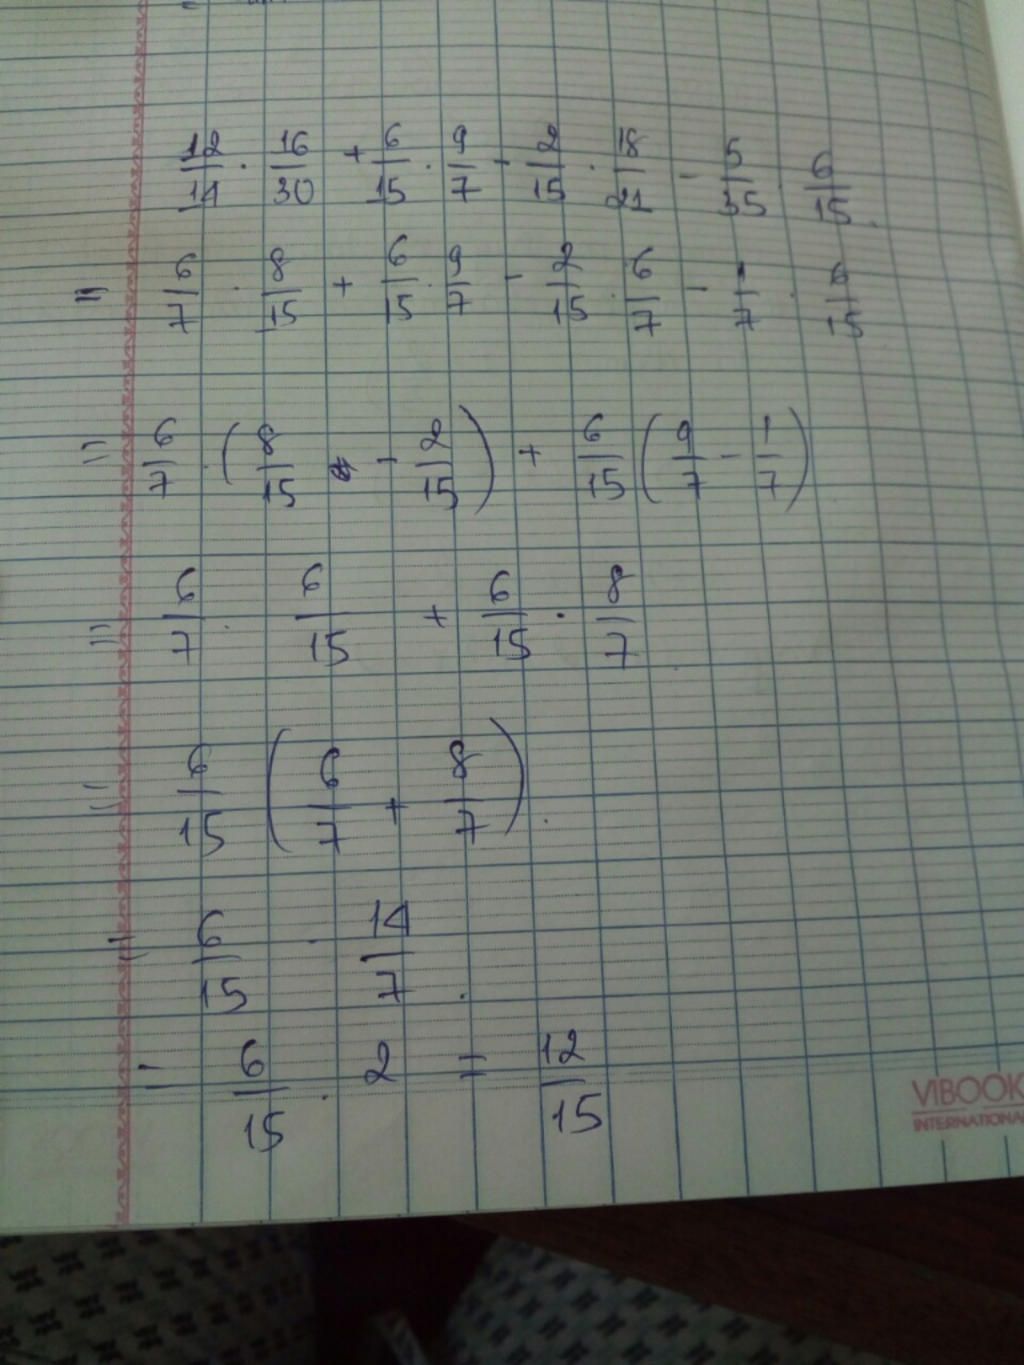 12/14 · 16/30 + 6/15 · 9/7 - 2/15 · 18/21 - 5/35 · 6/15
= 6/7 · 8/15 + 6/15 · 9/7 - 2/15 · 6/7 - 1/7 · 6/15
= 6/7 · (8/15 - 2/15) + 6/15 (9/7 - 1/7)
= 6/7 · 6/15 + 6/15 · 8/7
= 6/15 (6/7 + 8/7)
= 6/15 · 14/7
= 6/15 · 2 = 12/15
VIBOOK
INTERNATIONA